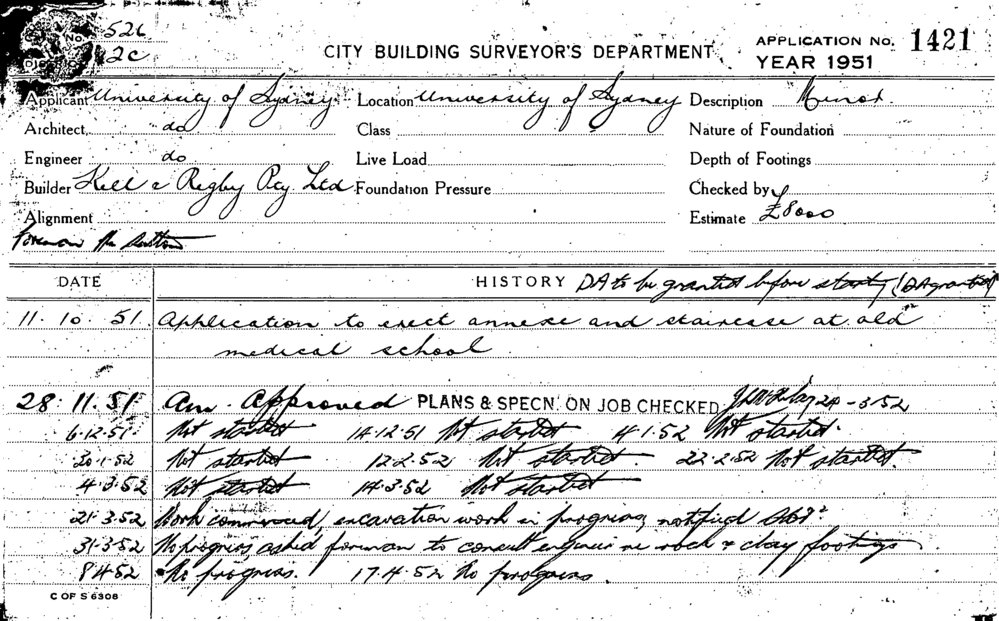 No. 526
DISTRICT 2c
CITY BUILDING SURVEYOR'S DEPARTMENT
APPLICATION No. 1421
YEAR 1951
Applicant University of Sydney Location University of Sydney Description Minor.
Architect do Class Nature of Foundation
Engineer do Live Load Depth of Footings
Builder Kell & Rigby Pty Ltd Foundation Pressure Checked by
Alignment Estimate £8000
Foreman Mr
DATE HISTORY DA to be granted before starting (DA granted)
11. 10. 51. Application to erect annexe and staircase at old
medical school
28. 11. 51. Approved PLANS & SPECN ON JOB CHECKED 24-3-52
6.12.51. Not started 14.12.51 Not started 4.1.52 Not started.
20.1.52 Not started 12.2.52 Not started. 22.2.52 Not started.
4.3.52 Not started 14.3.52 Not started
21.3.52 Work commenced, excavation work in progress, notified
31.3.52 No progress asked forman to consult engineer re rock & clay footings
8.4.52 No progress. 17.4.52 No progress.
C OF S 6308